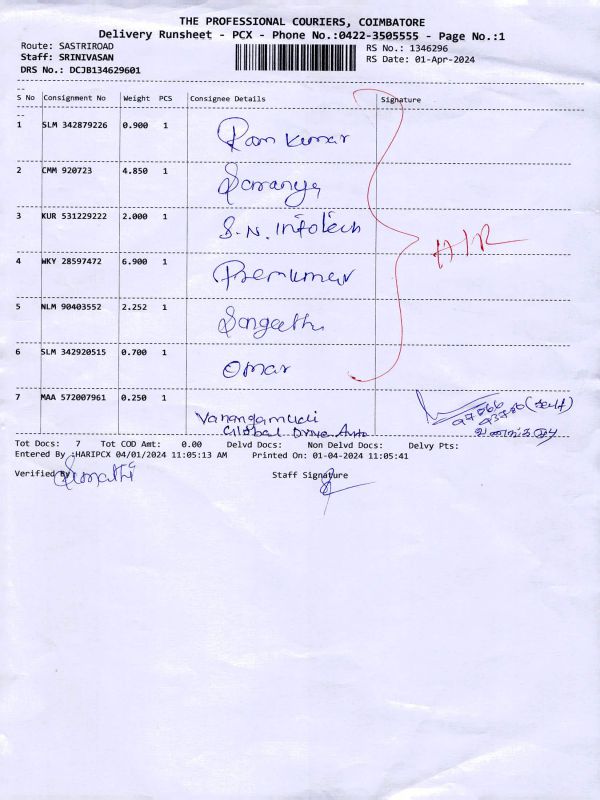 THE PROFESSIONAL COURIERS, COIMBATORE
Delivery Runsheet - PCX - Phone No.:0422-3505555 - Page No.:1
Route: SASTRIROAD RS No.: 1346296
Staff: SRINIVASAN RS Date: 01-Apr-2024
DRS No.: DCJB134629601
S No Consignment No Weight PCS Consignee Details Signature
1 SLM 342879226 0.900 1 Ram Kumar
2 CMM 920723 4.850 1 Saranya
3 KUR 531229222 2.000 1 S.N. Infotech
4 WKY 28597472 6.900 1 Premkumar
5 NLM 90403552 2.252 1 Sangeetha
6 SLM 342920515 0.700 1 Omar
7 MAA 572007961 0.250 1 Vanangamudi
Global Drive Auto
97866
93786 (self)
Tot Docs: 7 Tot COD Amt: 0.00 Delvd Docs: Non Delvd Docs: Delvy Pts:
Entered By :HARIPCX 04/01/2024 11:05:13 AM Printed On: 01-04-2024 11:05:41
Verified By Sumathi Staff Signature